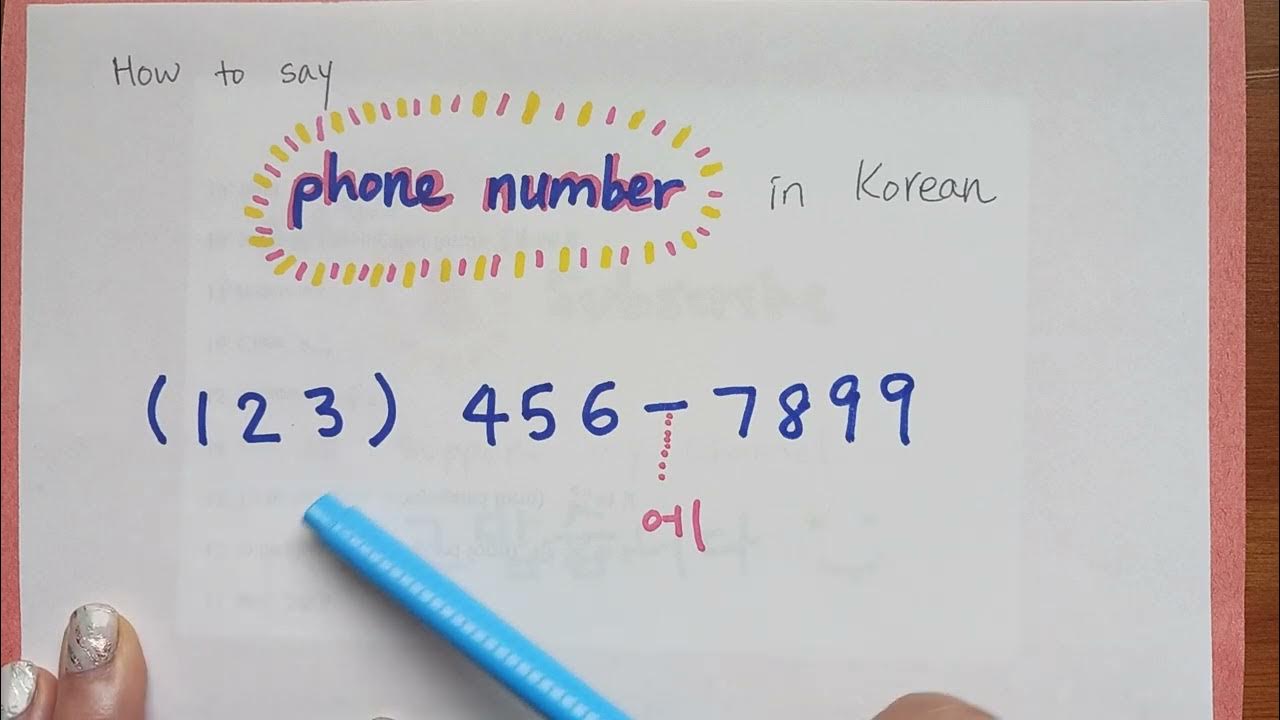 How to say
phone number in Korean
(123) 456-7899
에